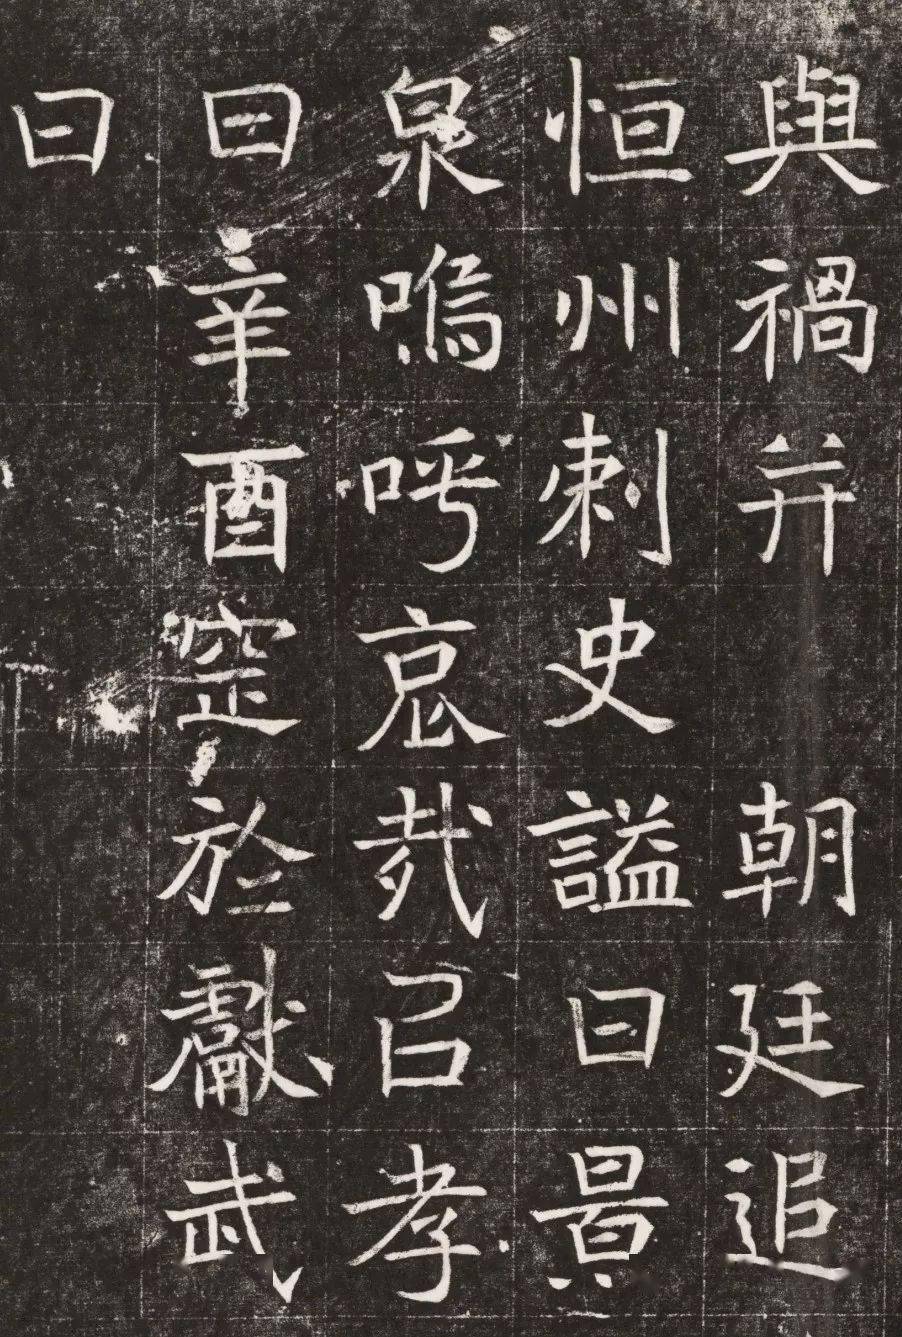 與禍并 朝廷追
恒州刺史謚曰景
泉嗚呼哀哉㠯孝
日辛酉窆於獻武
曰